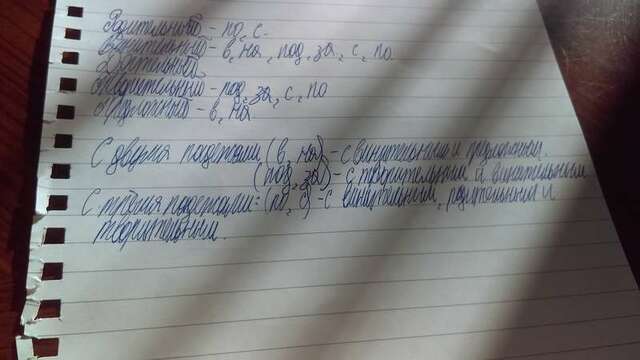 Родительный - по, с.
Винительный - в, на, под, за, с, по
Дательный
Творительный - под, за, с, по
Предложный - в, на
С двумя падежами (в, на) - с винительным и предложным.
(под, за) - с творительным и винительным
С тремя падежами: (по, с) - с винительным, родительным и
творительным.